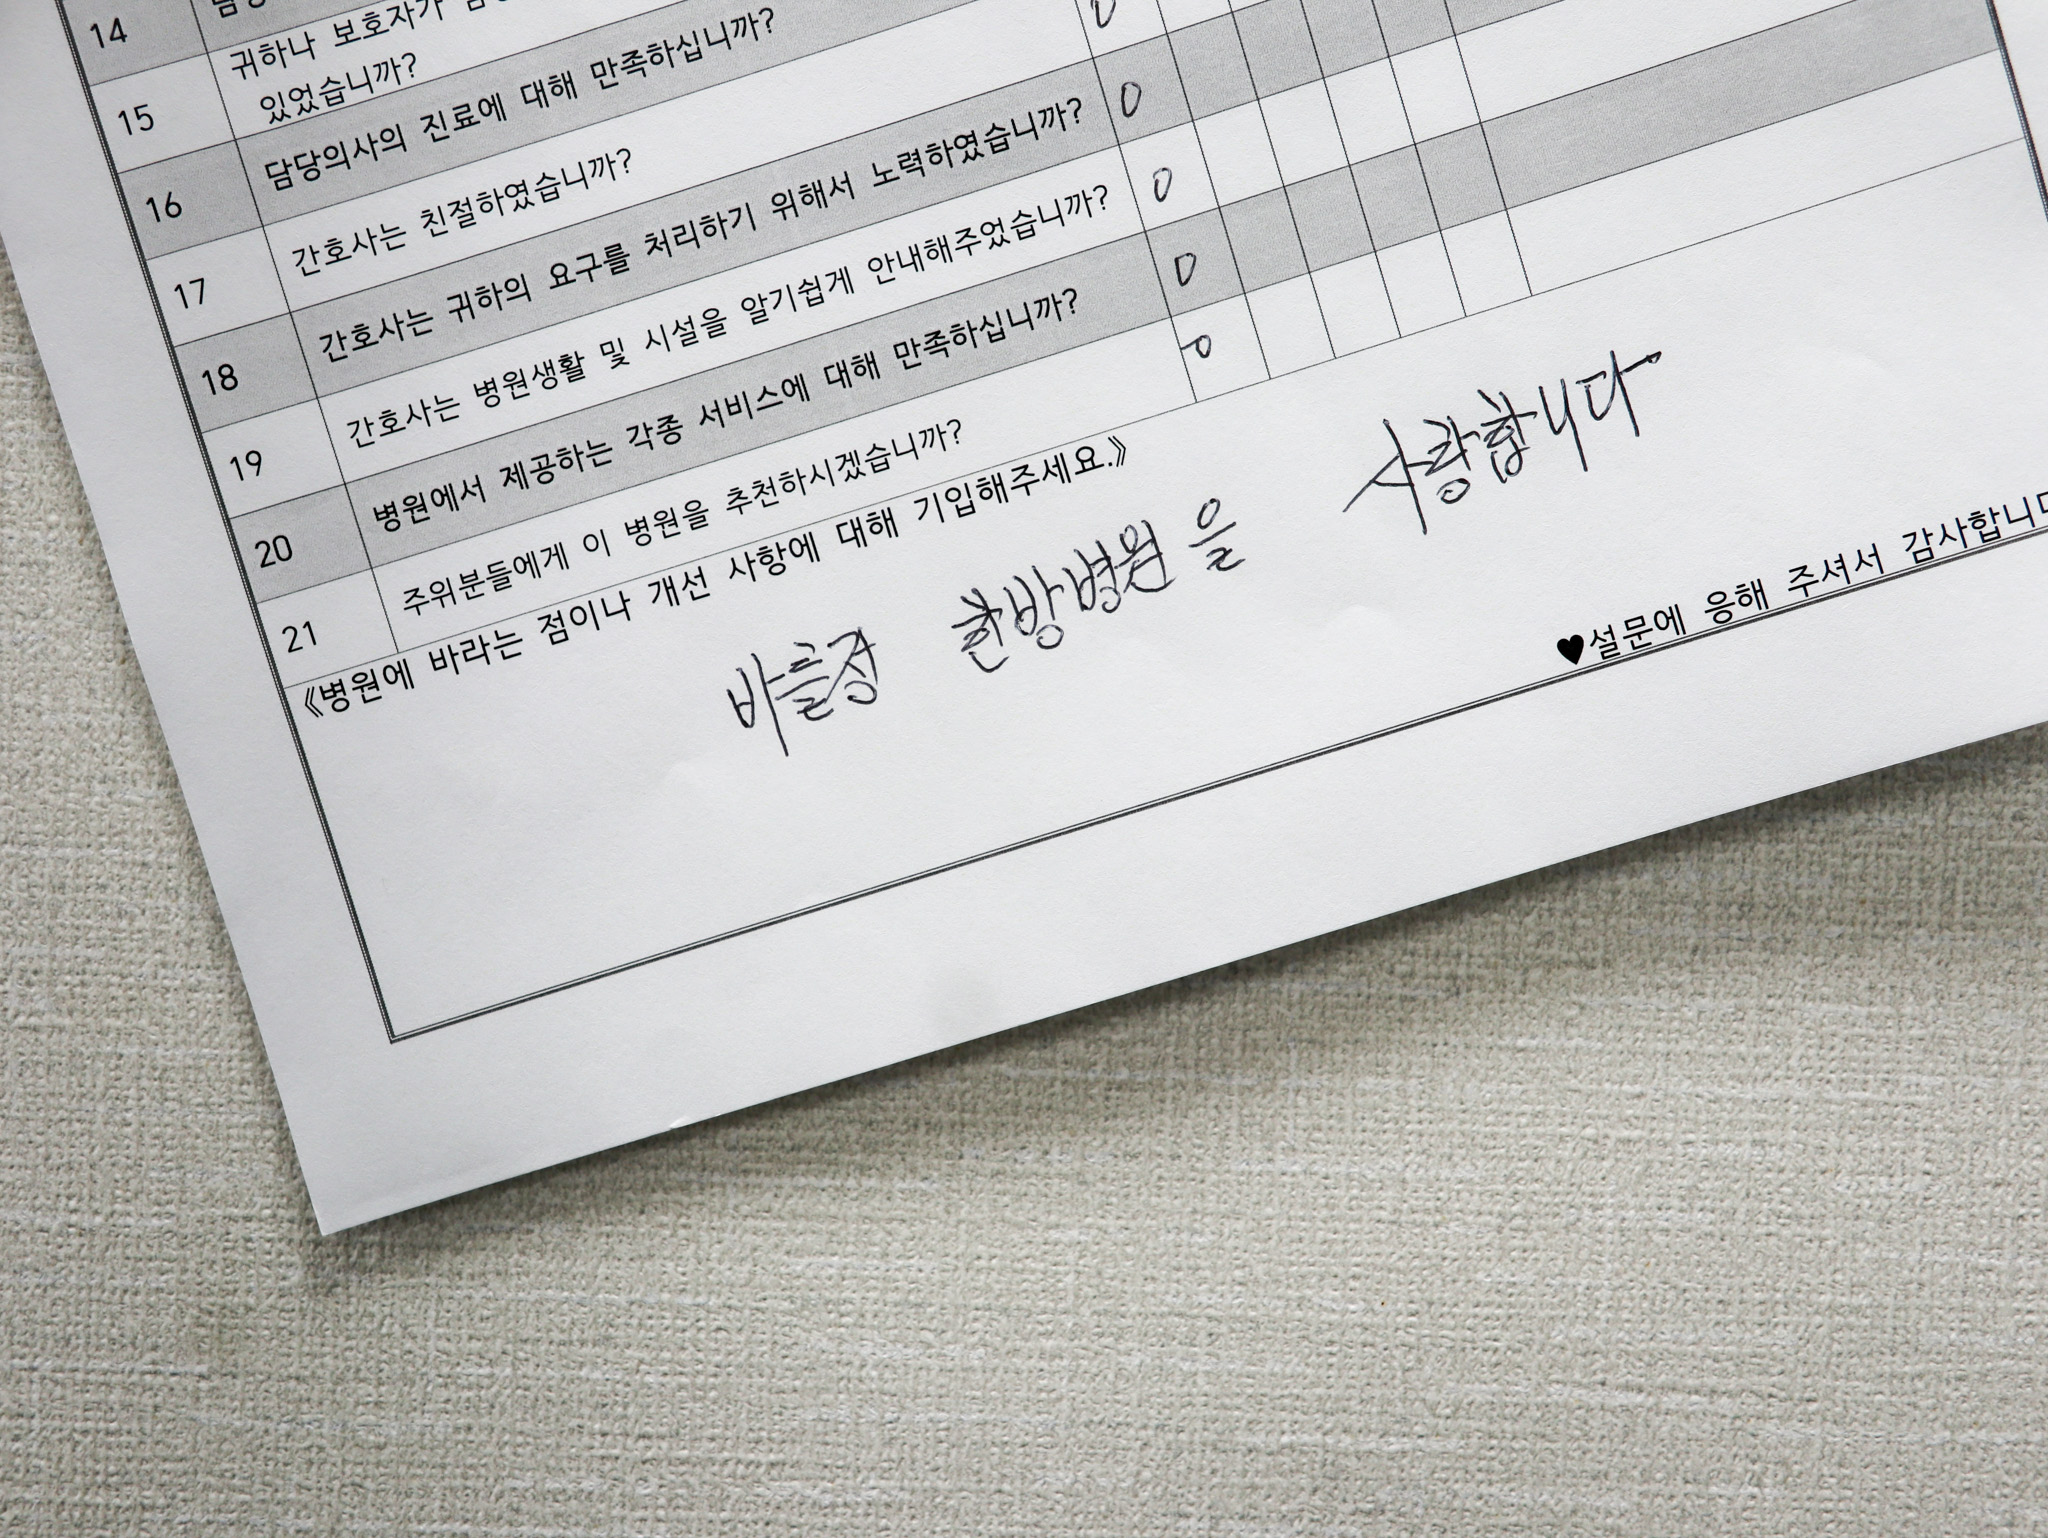 14 담당
15 귀하나 보호자가
있었습니까?
16 담당의사의 진료에 대해 만족하십니까?
17 간호사는 친절하였습니까? O
18 간호사는 귀하의 요구를 처리하기 위해서 노력하였습니까? O
19 간호사는 병원생활 및 시설을 알기쉽게 안내해주었습니까? O
20 병원에서 제공하는 각종 서비스에 대해 만족하십니까? O
21 주위분들에게 이 병원을 추천하시겠습니까? O
《병원에 바라는 점이나 개선 사항에 대해 기입해주세요.》
바를정 한방병원을 사랑합니다
♥설문에 응해 주셔서 감사합니다